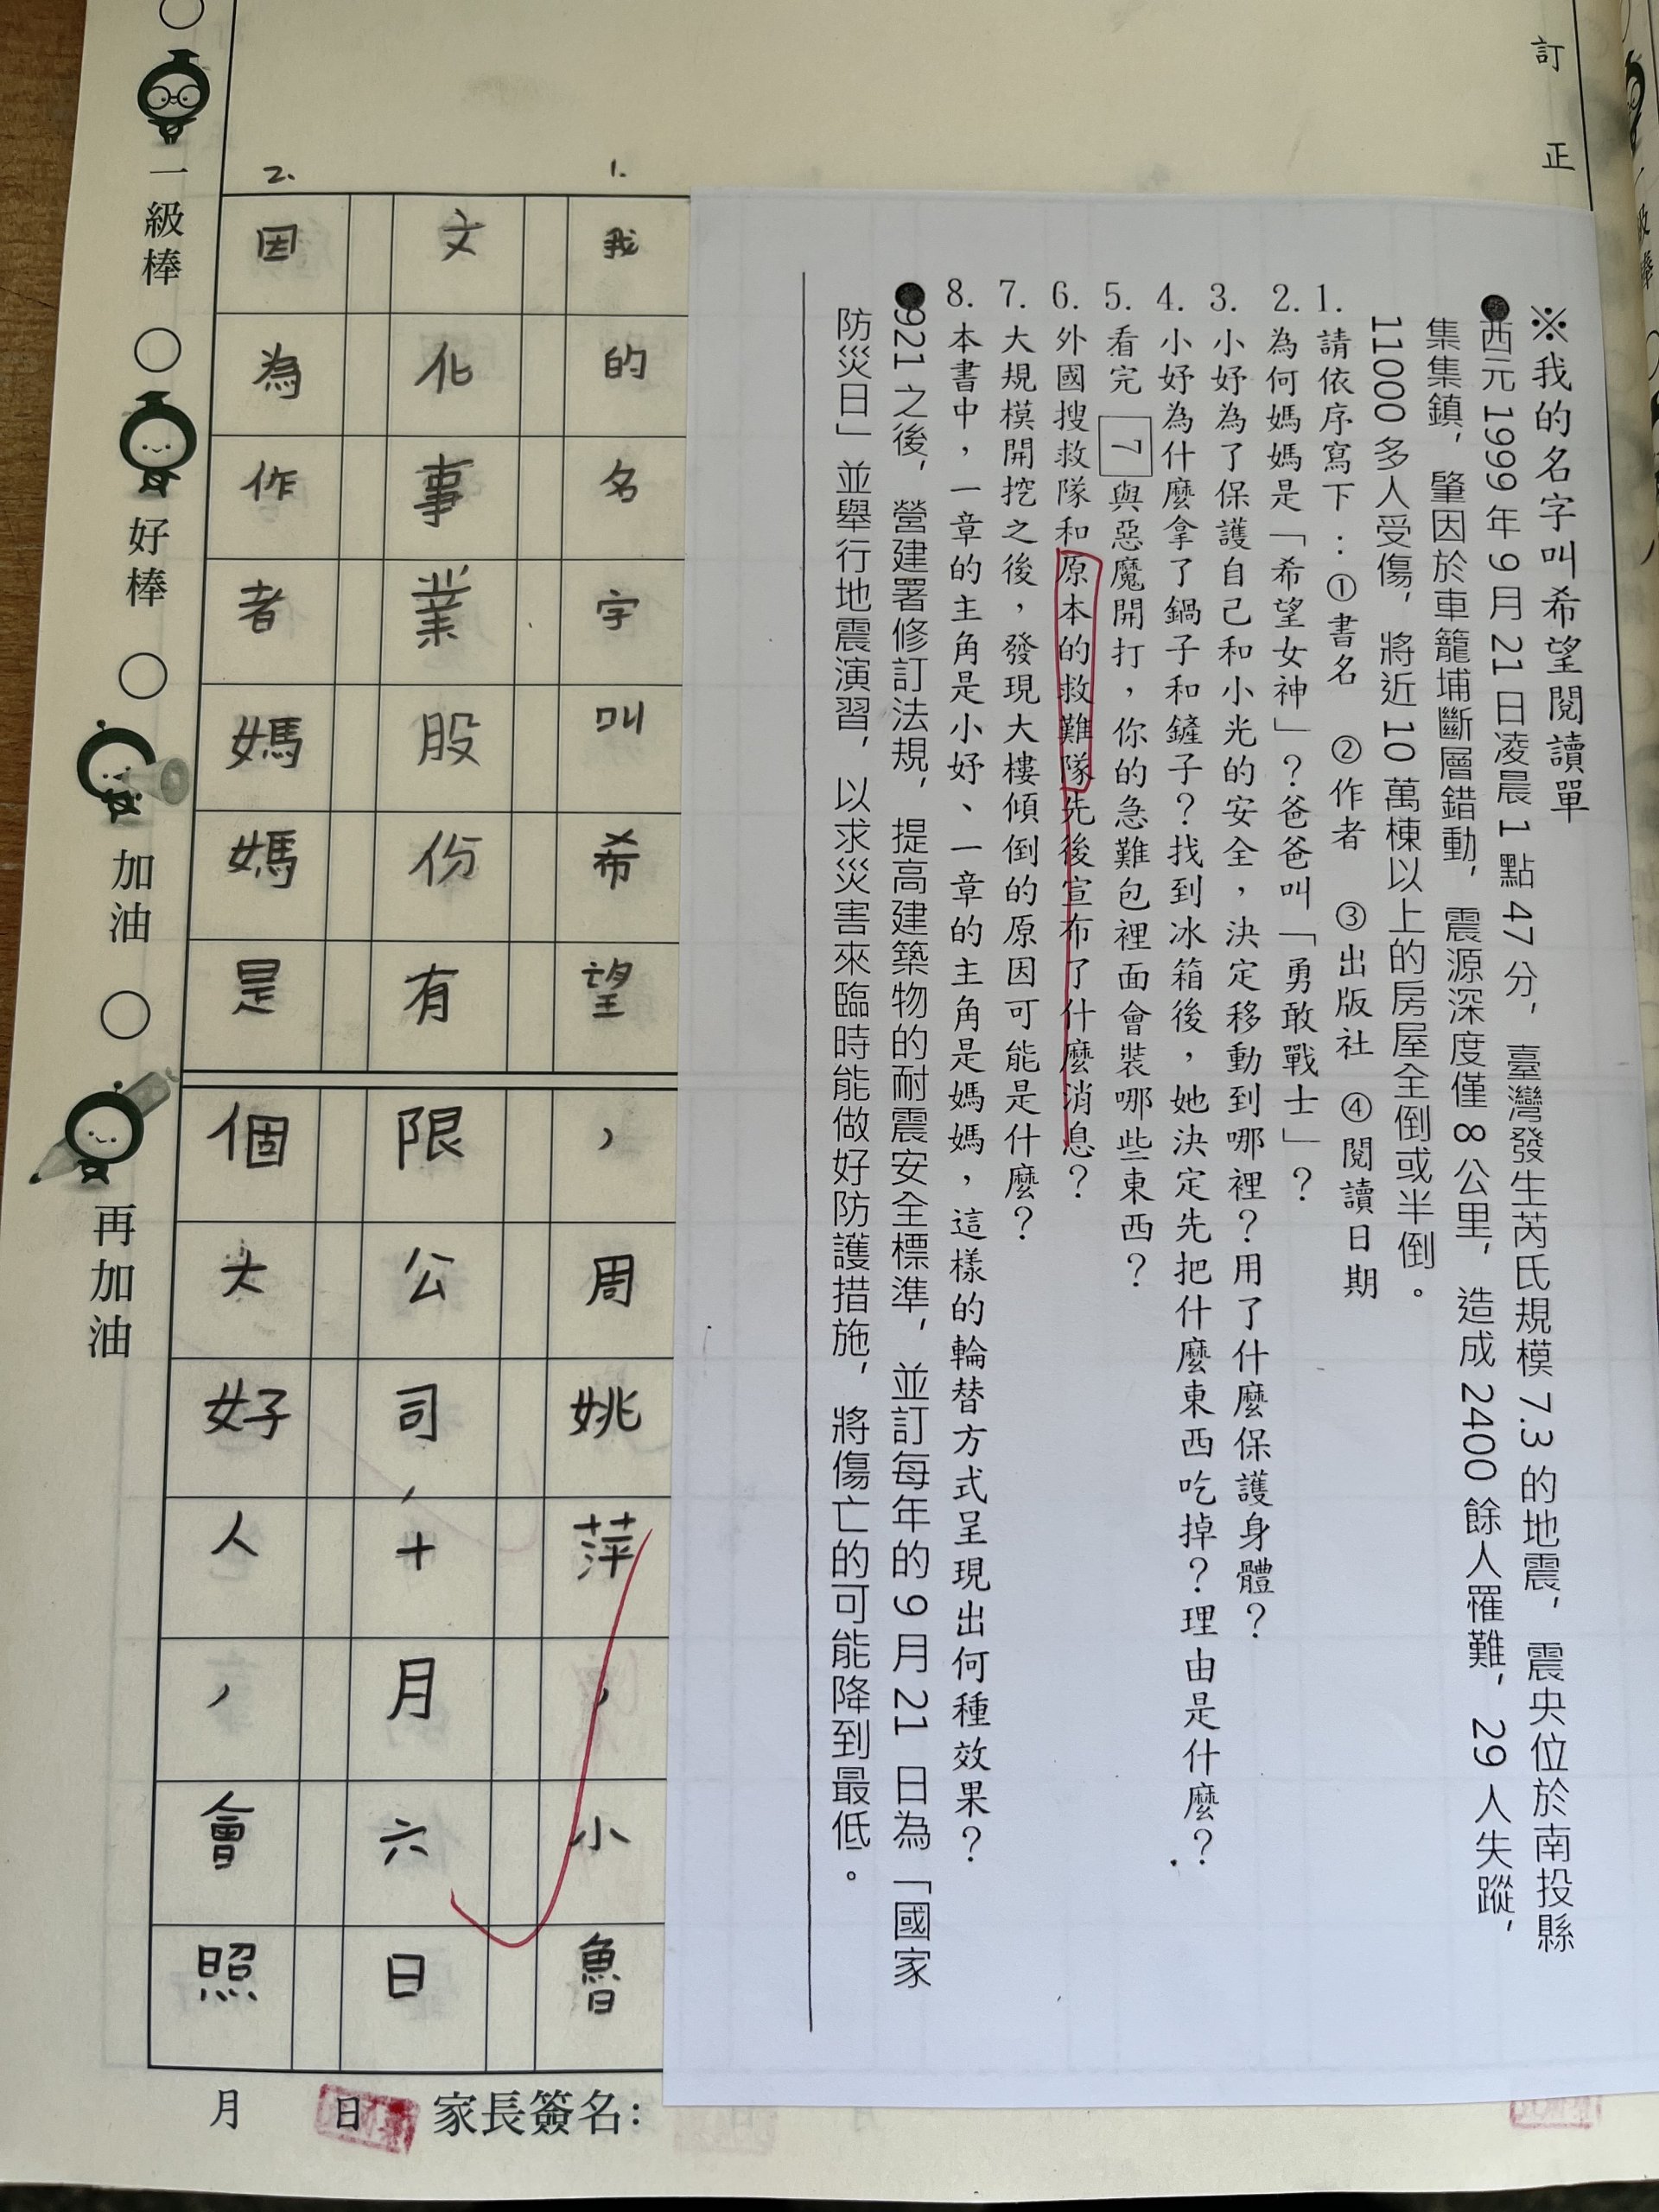 訂正
※我的名字叫希望閱讀單
●西元1999年9月21日凌晨1點47分，臺灣發生芮氏規模7.3的地震，震央位於南投縣
集集鎮，肇因於車籠埔斷層錯動，震源深度僅8公里，造成2400餘人罹難，29人失蹤，
11000多人受傷，將近10萬棟以上的房屋全倒或半倒。
1. 請依序寫下：①書名 ②作者 ③出版社 ④閱讀日期
2. 為何媽媽是「希望女神」？爸爸叫「勇敢戰士」？
3. 小妤為了保護自己和小光的安全，決定移動到哪裡？用了什麼保護身體？
4. 小妤為什麼拿了鍋子和鏟子？找到冰箱後，她決定先把什麼東西吃掉？理由是什麼？
5. 看完 7 與惡魔開打，你的急難包裡面會裝哪些東西？
6. 外國搜救隊和原本的救難隊先後宣布了什麼消息？
7. 大規模開挖之後，發現大樓傾倒的原因可能是什麼？
8. 本書中，一章的主角是小妤、一章的主角是媽媽，這樣的輪替方式呈現出何種效果？
●921之後，營建署修訂法規，提高建築物的耐震安全標準，並訂每年的9月21日為「國家
防災日」並舉行地震演習，以求災害來臨時能做好防護措施，將傷亡的可能降到最低。
1.
我的名字叫希望，周姚萍，小魯
文化事業股份有限公司，十月六日
2.
因為作者媽媽是個大好人，會照
一級棒
好棒
加油
再加油
月 日 家長簽名：